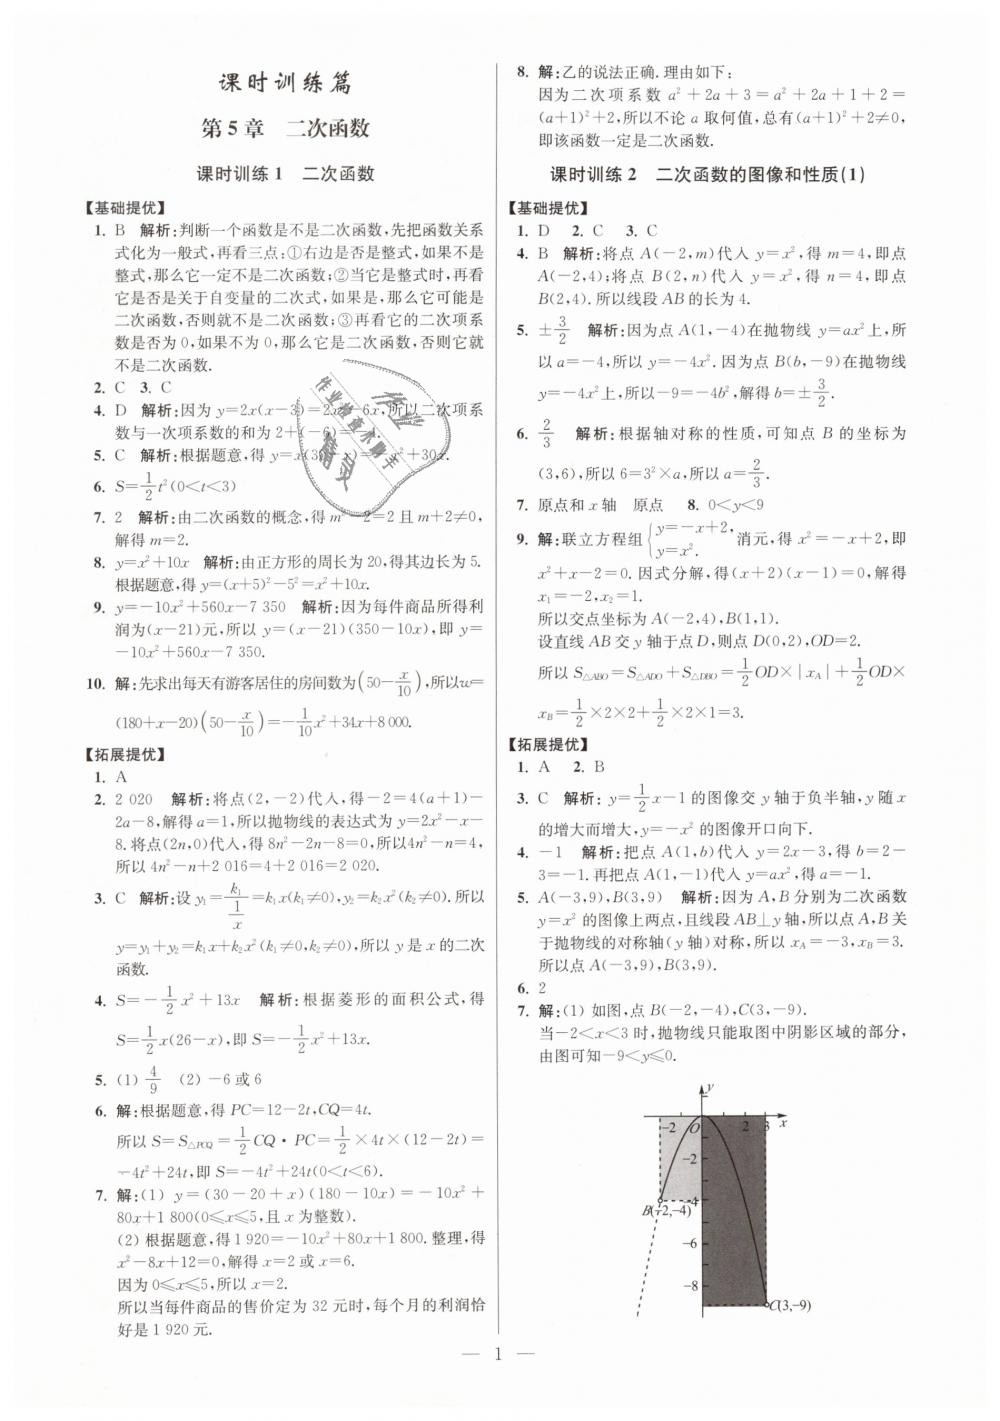 课时训练篇
第5章 二次函数
课时训练1 二次函数
【基础提优】
1. B 解析:判断一个函数是不是二次函数,先把函数关系
式化为一般式,再看三点:①右边是否是整式,如果不是
整式,那么它一定不是二次函数;②当它是整式时,再看
它是否是关于自变量的二次式,如果是,那么它可能是
二次函数,否则就不是二次函数;③再看它的二次项系
数是否为0,如果不为0,那么它是二次函数,否则它就
不是二次函数.
2. C 3. C
4. D 解析:因为 y=2x(x-3)=2x²-6x,所以二次项系
数与一次项系数的和为2+(-6)=
5. C 解析:根据题意,得 y=x(30-x)=-x²+30x.
6. S=1/2t²(0<t<3)
7. 2 解析:由二次函数的概念,得m²-2=2且m+2≠0,
解得m=2.
8. y=x²+10x 解析:由正方形的周长为20,得其边长为5.
根据题意,得y=(x+5)²-5²=x²+10x.
9. y=-10x²+560x-7 350 解析:因为每件商品所得利
润为(x-21)元,所以 y=(x-21)(350-10x),即 y=
-10x²+560x-7 350.
10. 解:先求出每天有游客居住的房间数为(50-x/10),所以w=
(180+x-20)(50-x/10)=-1/10x²+34x+8 000.
【拓展提优】
1. A
2. 2 020 解析:将点(2,-2)代入,得-2=4(a+1)-
2a-8,解得a=1,所以抛物线的表达式为y=2x²-x-
8.将点(2n,0)代入,得8n²-2n-8=0,所以4n²-n=4,
所以4n²-n+2 016=4+2 016=2 020.
3. C 解析:设y₁=k₁/(1/x)=k₁x(k₁≠0),y₂=k₂x²(k₂≠0).所以
y=y₁+y₂=k₁x+k₂x²(k₁≠0,k₂≠0),所以y是x的二次
函数.
4. S=-1/2x²+13x 解析:根据菱形的面积公式,得
S=1/2x(26-x),即S=-1/2x²+13x.
5. (1) 4/9 (2) -6或6
6. 解:根据题意,得PC=12-2t,CQ=4t.
所以S=S△PCQ=1/2CQ·PC=1/2×4t×(12-2t)=
-4t²+24t,即S=-4t²+24t(0<t<6).
7. 解:(1) y=(30-20+x)(180-10x)=-10x²+
80x+1 800(0≤x≤5,且x为整数).
(2) 根据题意,得1 920=-10x²+80x+1 800.整理,得
x²-8x+12=0,解得x=2或x=6.
因为0≤x≤5,所以x=2.
所以当每件商品的售价定为32元时,每个月的利润恰
好是1 920元.
8. 解:乙的说法正确.理由如下:
因为二次项系数a²+2a+3=a²+2a+1+2=
(a+1)²+2,所以不论a取何值,总有(a+1)²+2≠0,
即该函数一定是二次函数.
课时训练2 二次函数的图像和性质(1)
【基础提优】
1. D 2. C 3. C
4. B 解析:将点A(-2,m)代入y=x²,得m=4,即点
A(-2,4);将点B(2,n)代入y=x²,得n=4,即点
B(2,4).所以线段AB的长为4.
5. ±3/2 解析:因为点A(1,-4)在抛物线y=ax²上,所
以a=-4,所以y=-4x².因为点B(b,-9)在抛物线
y=-4x²上,所以-9=-4b²,解得b=±3/2.
6. 2/3 解析:根据轴对称的性质,可知点B的坐标为
(3,6),所以6=3²×a,所以a=2/3.
7. 原点和x轴 原点 8. 0<y<9
9. 解:联立方程组{y=-x+2, y=x². 消元,得x²=-x+2,即
x²+x-2=0.因式分解,得(x+2)(x-1)=0,解得
x₁=-2,x₂=1.
所以交点坐标为A(-2,4),B(1,1).
设直线AB交y轴于点D,则点D(0,2),OD=2.
所以S△ABO=S△ADO+S△DBO=1/2OD×|xA|+1/2OD×
xB=1/2×2×2+1/2×2×1=3.
【拓展提优】
1. A 2. B
3. C 解析:y=1/2x-1的图像交y轴于负半轴,y随x
的增大而增大,y=-x²的图像开口向下.
4. -1 解析:把点A(1,b)代入y=2x-3,得b=2-
3=-1.再把点A(1,-1)代入y=ax²,得a=-1.
5. A(-3,9),B(3,9) 解析:因为A,B分别为二次函数
y=x²的图像上两点,且线段AB⊥y轴,所以点A,B关
于抛物线的对称轴(y轴)对称,所以xA=-3,xB=3.
所以点A(-3,9),B(3,9).
6. 2
7. 解:(1) 如图,点B(-2,-4),C(3,-9).
当-2<x<3时,抛物线只能取图中阴影区域的部分,
由图可知-9<y≤0.
y
-2 O 2 3 x
-2
-4
B(-2,-4)
-6
-8
C(3,-9)
作业
作业检查小助手
精灵
— 1 —